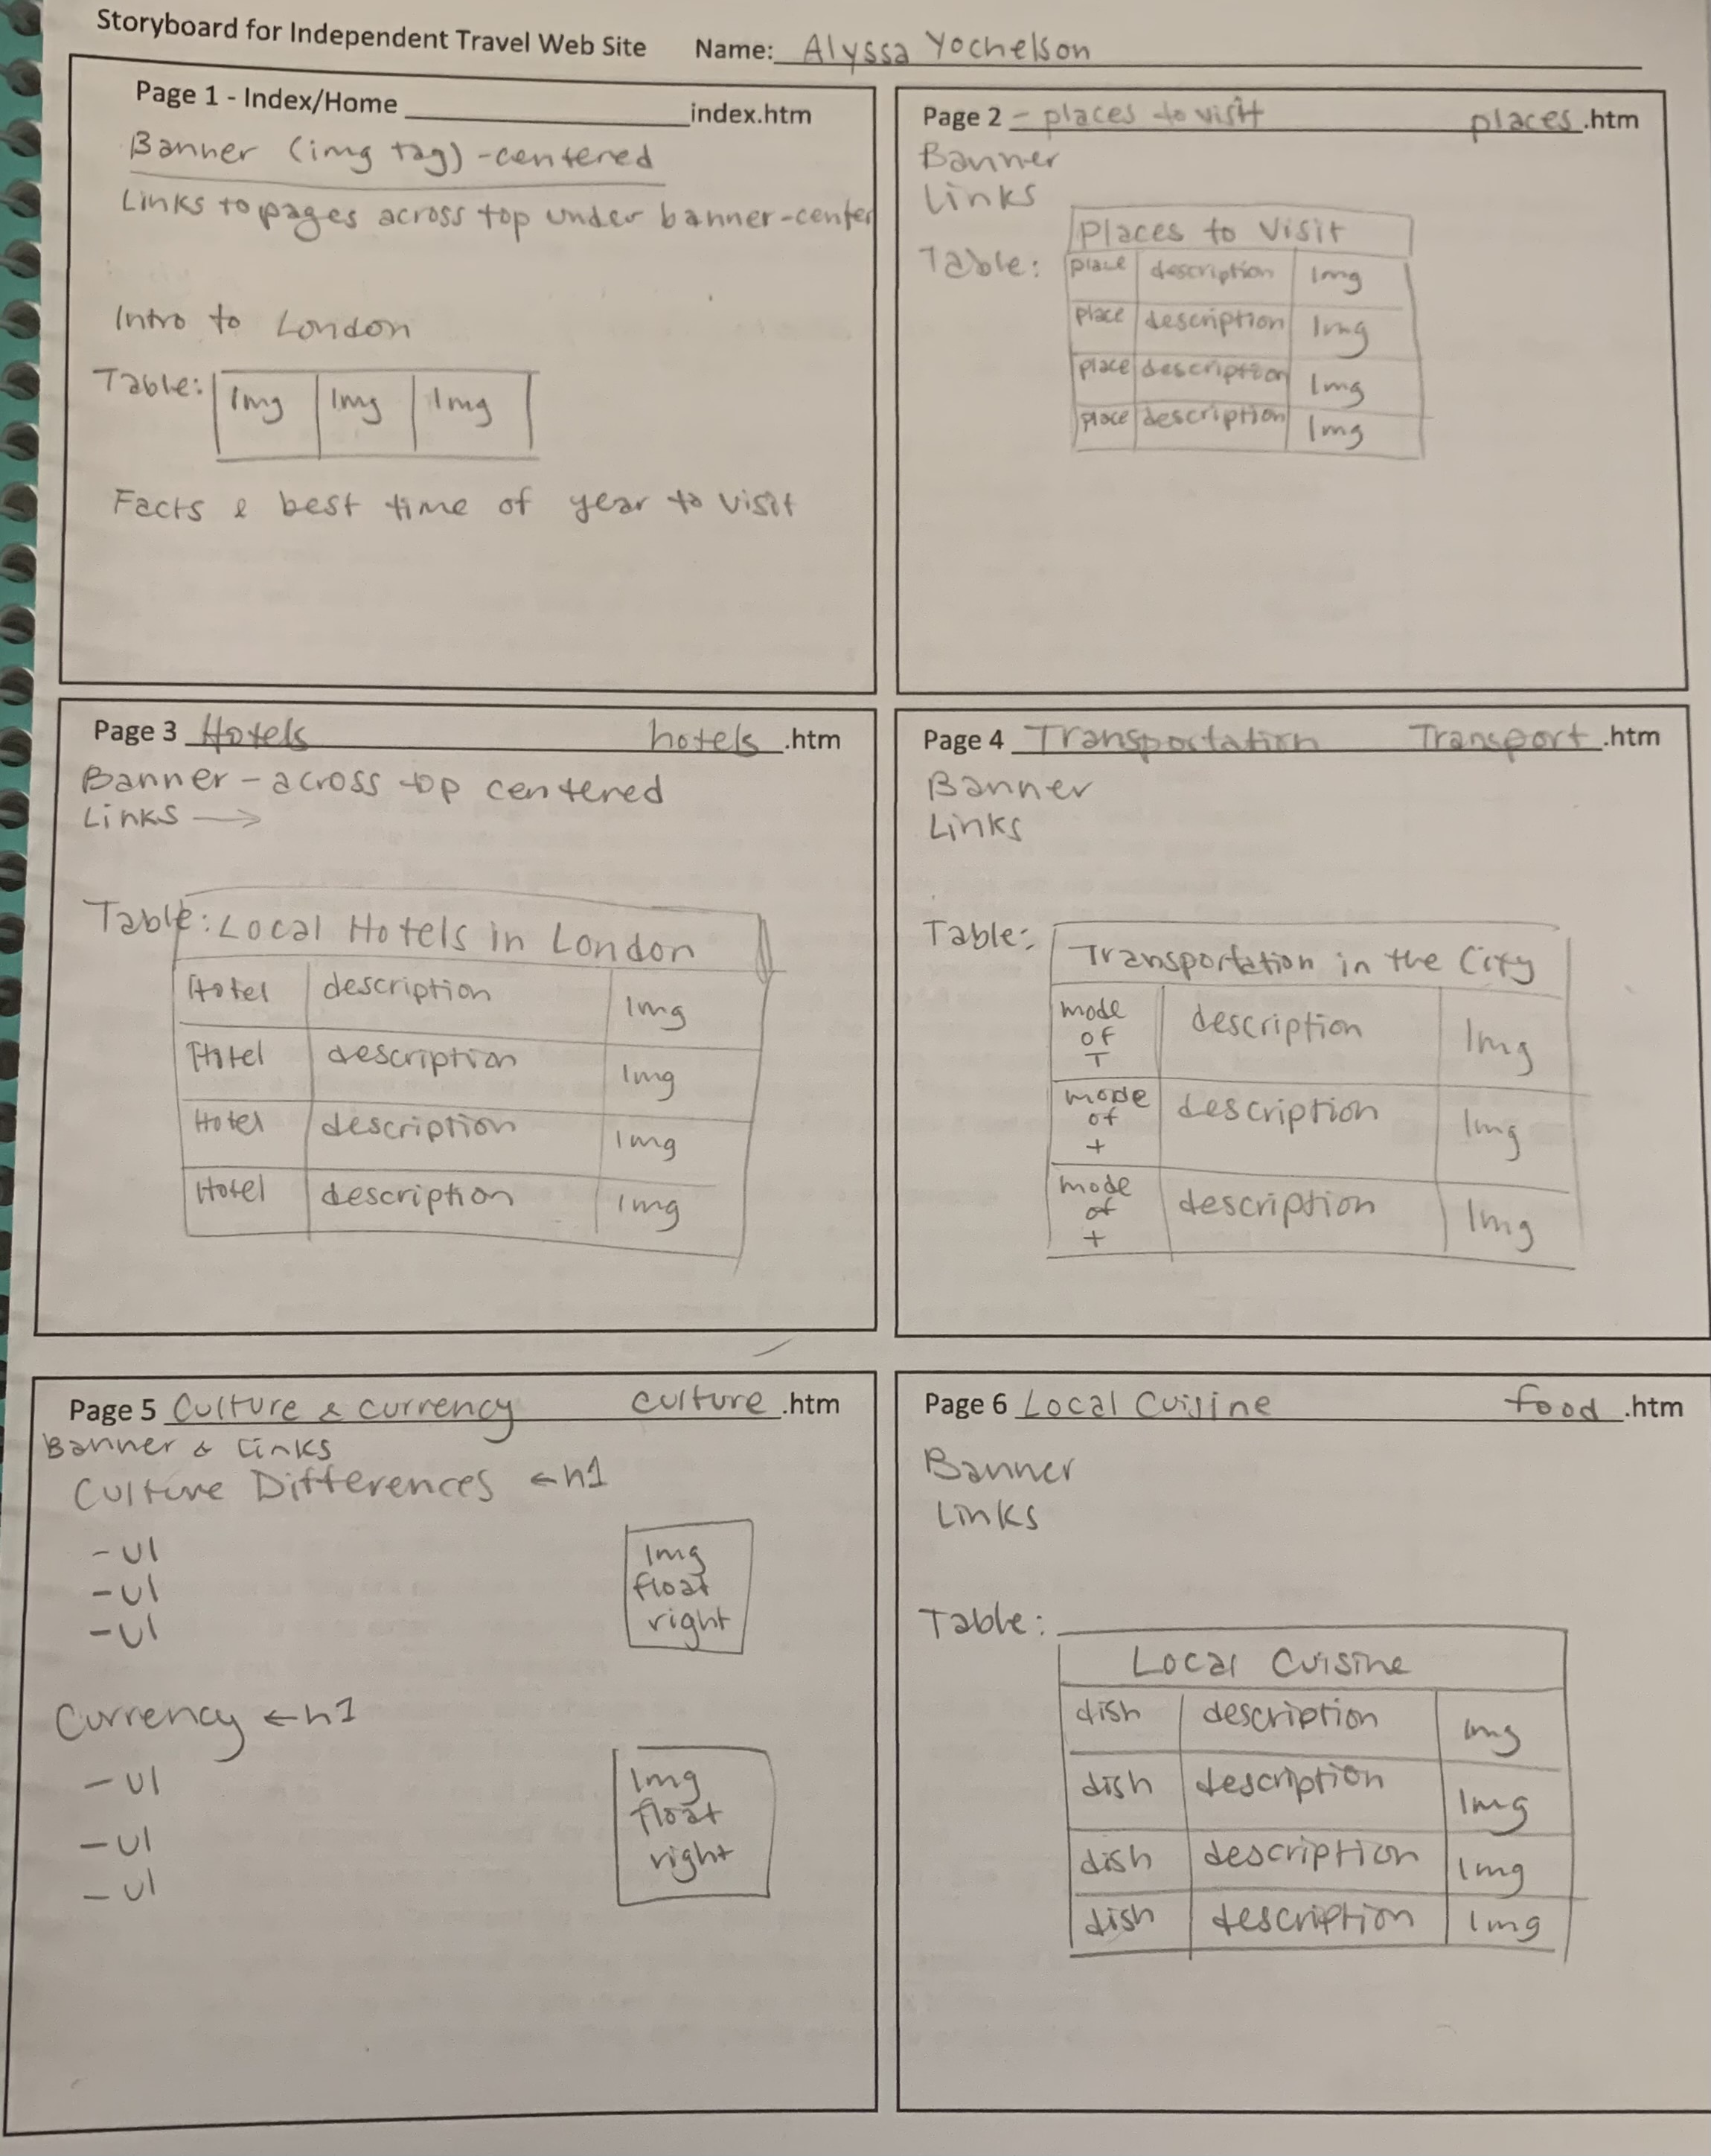 Storyboard for Independent Travel Web Site Name: Alyssa Yochelson
Page 1 - Index/Home index.htm
Banner (img tag) - centered
Links to pages across top under banner-center
Intro to London
Table: Img Img Img
Facts & best time of year to visit
Page 2 - places to visit places.htm
Banner
Links
Places to Visit
Table: place description Img
place description Img
place description Img
place description Img
Page 3 Hotels hotels.htm
Banner - across top centered
Links →
Table: Local Hotels in London
Hotel description Img
Hotel description Img
Hotel description Img
Hotel description Img
Page 4 Transportation Transport.htm
Banner
Links
Table: Transportation in the City
mode of T description Img
mode of t description Img
mode of t description Img
Page 5 Culture & currency culture.htm
Banner & Links
Culture Differences ← h1
- ul
- ul
- ul
Img
float
right
Currency ← h1
- ul
- ul
- ul
Img
float
right
Page 6 Local Cuisine food.htm
Banner
Links
Table:
Local Cuisine
dish description Img
dish description Img
dish description Img
dish description Img